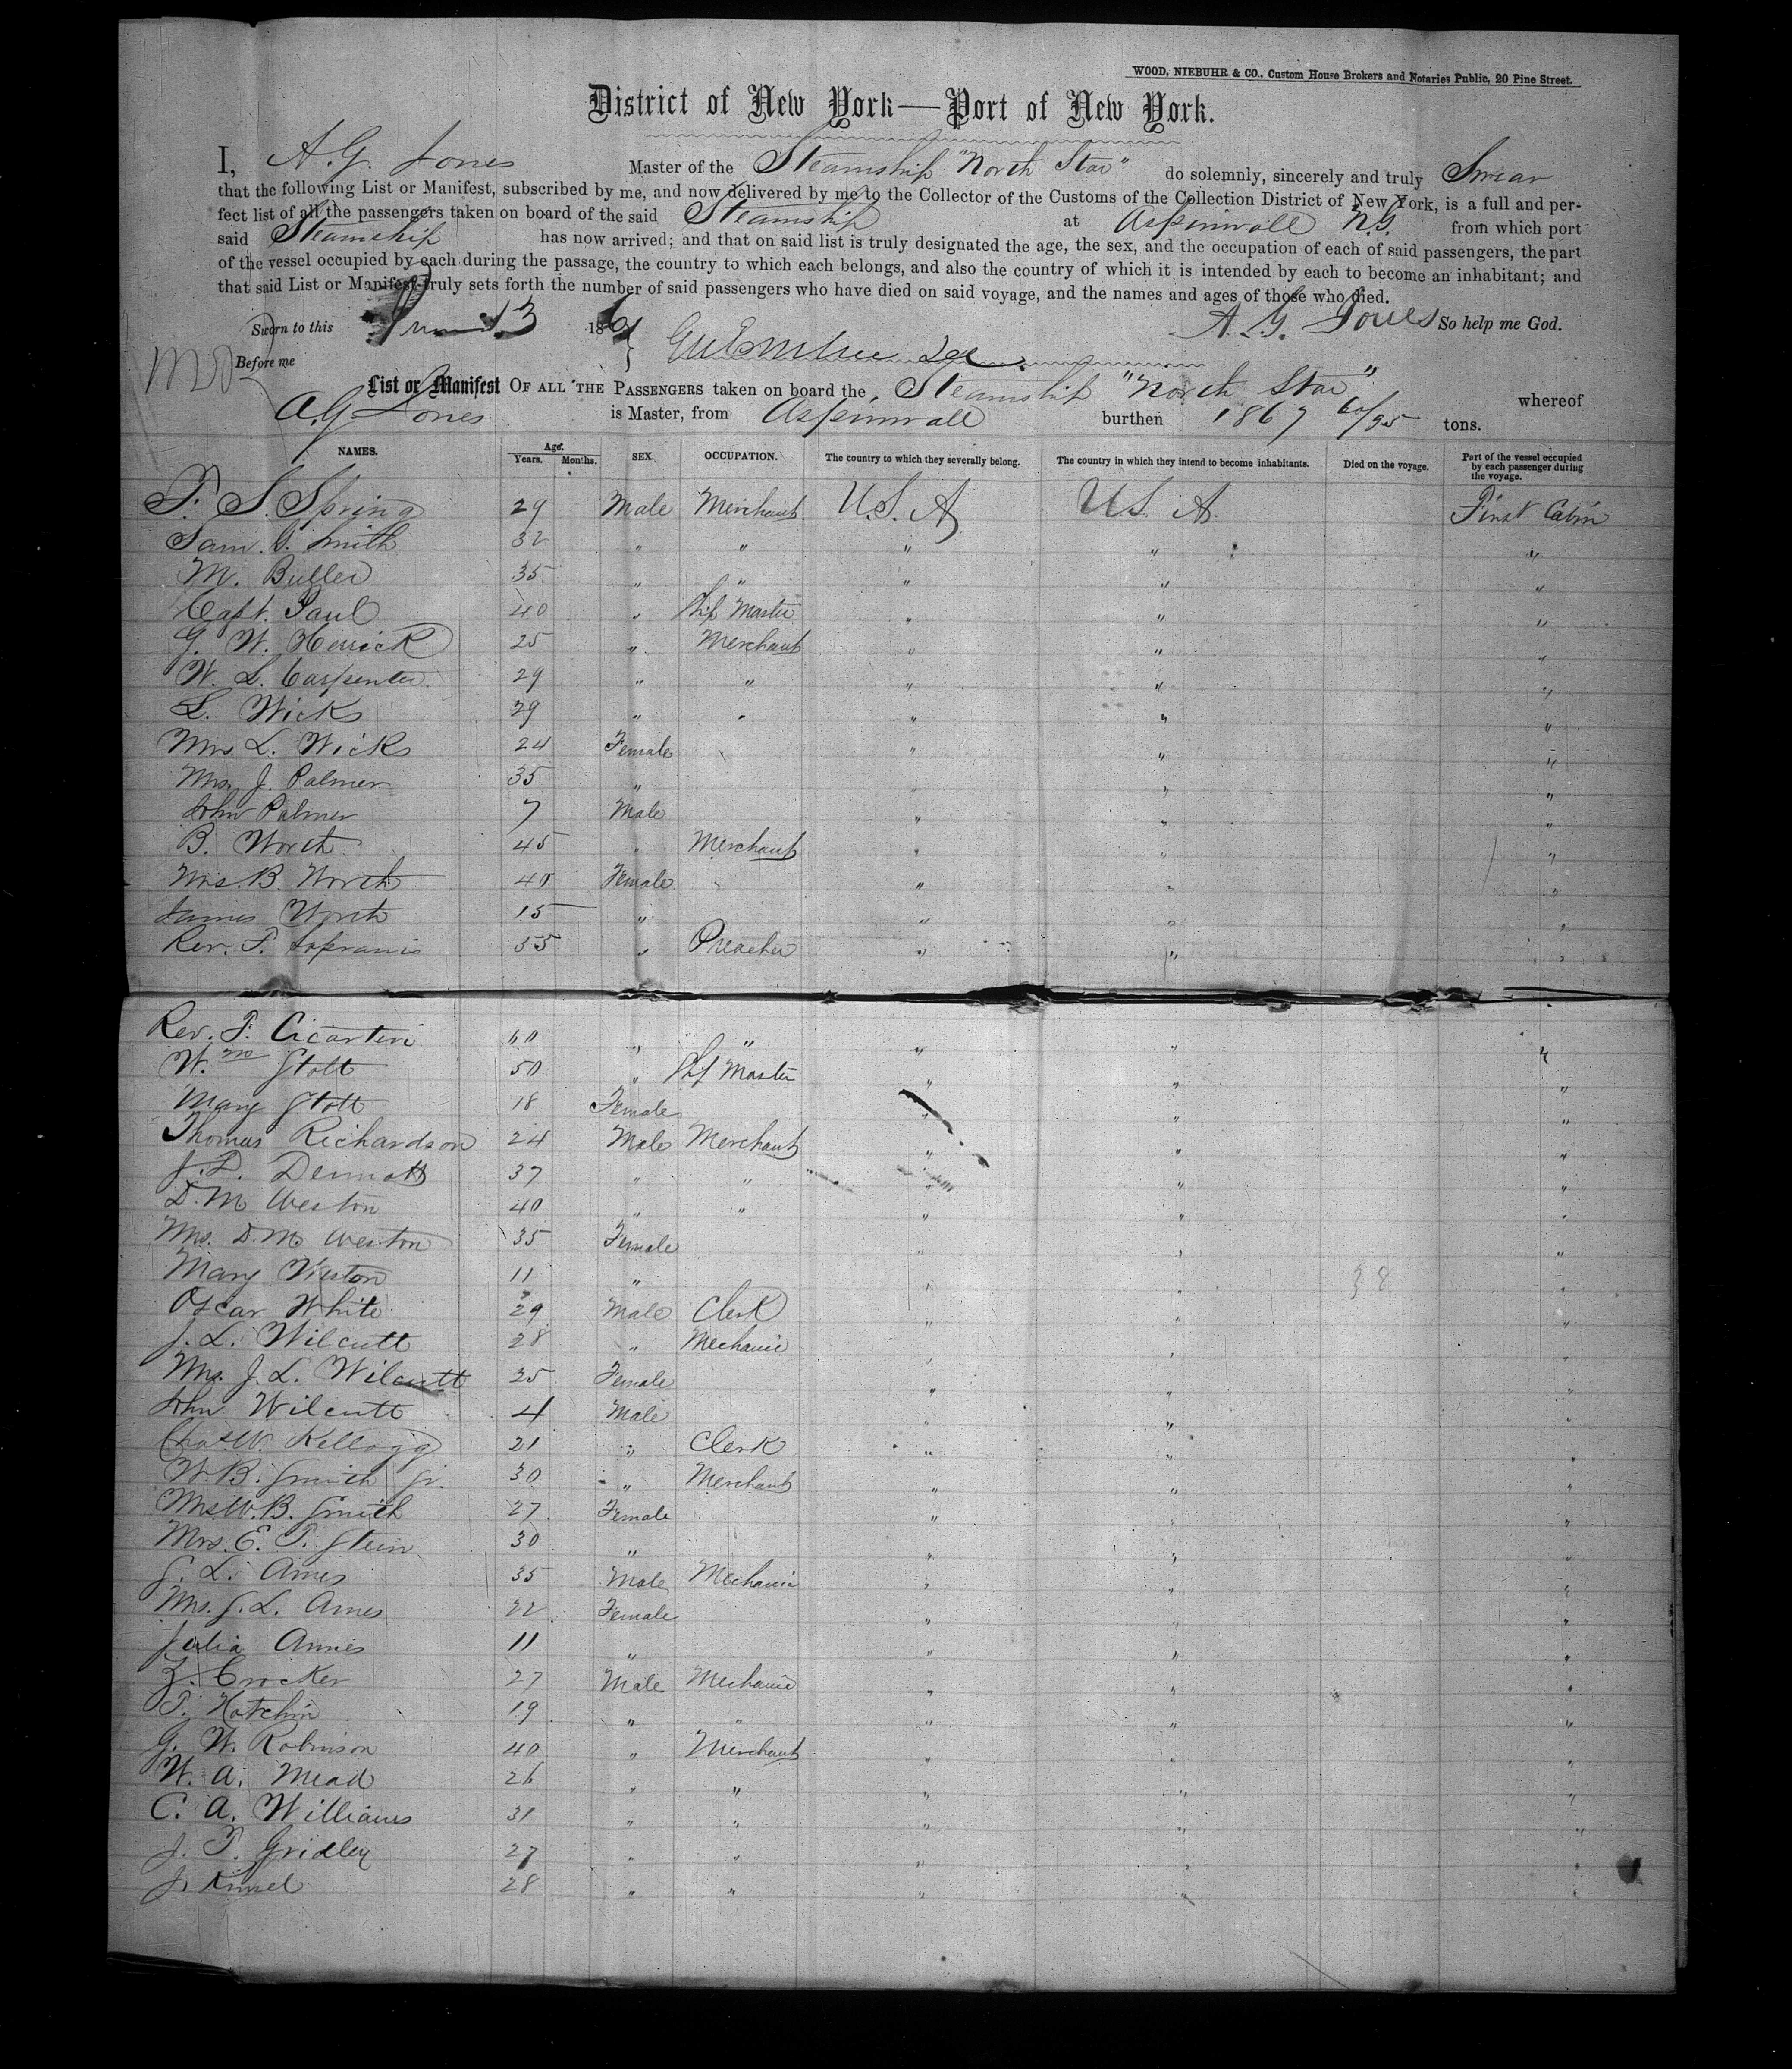 WOOD, NIEBUHR & CO., Custom House Brokers and Notaries Public, 20 Pine Street.
District of New York—Port of New York.
I, A. G. Jones Master of the Steamship "North Star" do solemnly, sincerely and truly Swear
that the following List or Manifest, subscribed by me, and now delivered by me to the Collector of the Customs of the Collection District of New York, is a full and per-
fect list of all the passengers taken on board of the said Steamship at Aspinwall N.G. from which port
said Steamship has now arrived; and that on said list is truly designated the age, the sex, and the occupation of each of said passengers, the part
of the vessel occupied by each during the passage, the country to which each belongs, and also the country of which it is intended by each to become an inhabitant; and
that said List or Manifest truly sets forth the number of said passengers who have died on said voyage, and the names and ages of those who died.
Sworn to this 13 186 A. G. Jones So help me God.
Before me
List or Manifest OF ALL THE PASSENGERS taken on board the Steamship "North Star" whereof
A. G. Jones is Master, from Aspinwall burthen 1867 60/95 tons.
NAMES. Age. Years. Months. SEX. OCCUPATION. The country to which they severally belong. The country in which they intend to become inhabitants. Died on the voyage. Part of the vessel occupied by each passenger during the voyage.
F. S. Spring 29 Male Merchant U.S.A U.S.A. First Cabin
Sam. G. Smith 32 " " " " "
M. Butler 35 " " " " "
Capt. Paul 40 " Ship Master " " "
G. W. Herrick 25 " Merchant " " "
W. L. Carpenter 29 " " " " "
L. Wicks 29 " " " " "
Mrs. L. Wicks 24 Female " " "
Mrs. J. Palmer 35 " " " "
John Palmer 7 Male " " "
B. Worth 45 " Merchant " " "
Mrs. B. Worth 40 Female " " "
James Worth 15 " " " "
Rev. F. 55 " Preacher " " "
Rev. F. Cicarteri 60 " " " " "
Wm Stott 50 " Ship Master " " "
Mary Stott 18 Female " " "
Thomas Richardson 24 Male Merchant " " "
J. P. Dermott 37 " " " " "
D. M Weston 40 " " " " "
Mrs. D. M. Weston 35 Female " " "
Mary Weston 11 " " " 38
Oscar White 29 Male Clerk " " "
J. L. Wilcutt 28 " Mechanic " " "
Mrs. J. L. Wilcutt 25 Female " " "
John Wilcutt 4 Male " " "
Chas W. Kellogg 21 " Clerk " " "
W. B. Smith Jr. 30 " Merchant " " "
Mrs W. B. Smith 27 Female " " "
Mrs. E. T. Stein 30 " " " "
J. L. Ames 35 Male Mechanic " " "
Mrs. J. L. Ames 22 Female " " "
Julia Ames 11 " " " "
Z. Crocker 27 Male Mechanic " " "
T. Hotchin 19 " " " " "
G. W. Robinson 40 " Merchant " " "
W. A. Mead 26 " " " " "
C. A. Williams 31 " " " " "
J. T. Gridley 27 " " " " "
J. Kimel 28 " " " " "